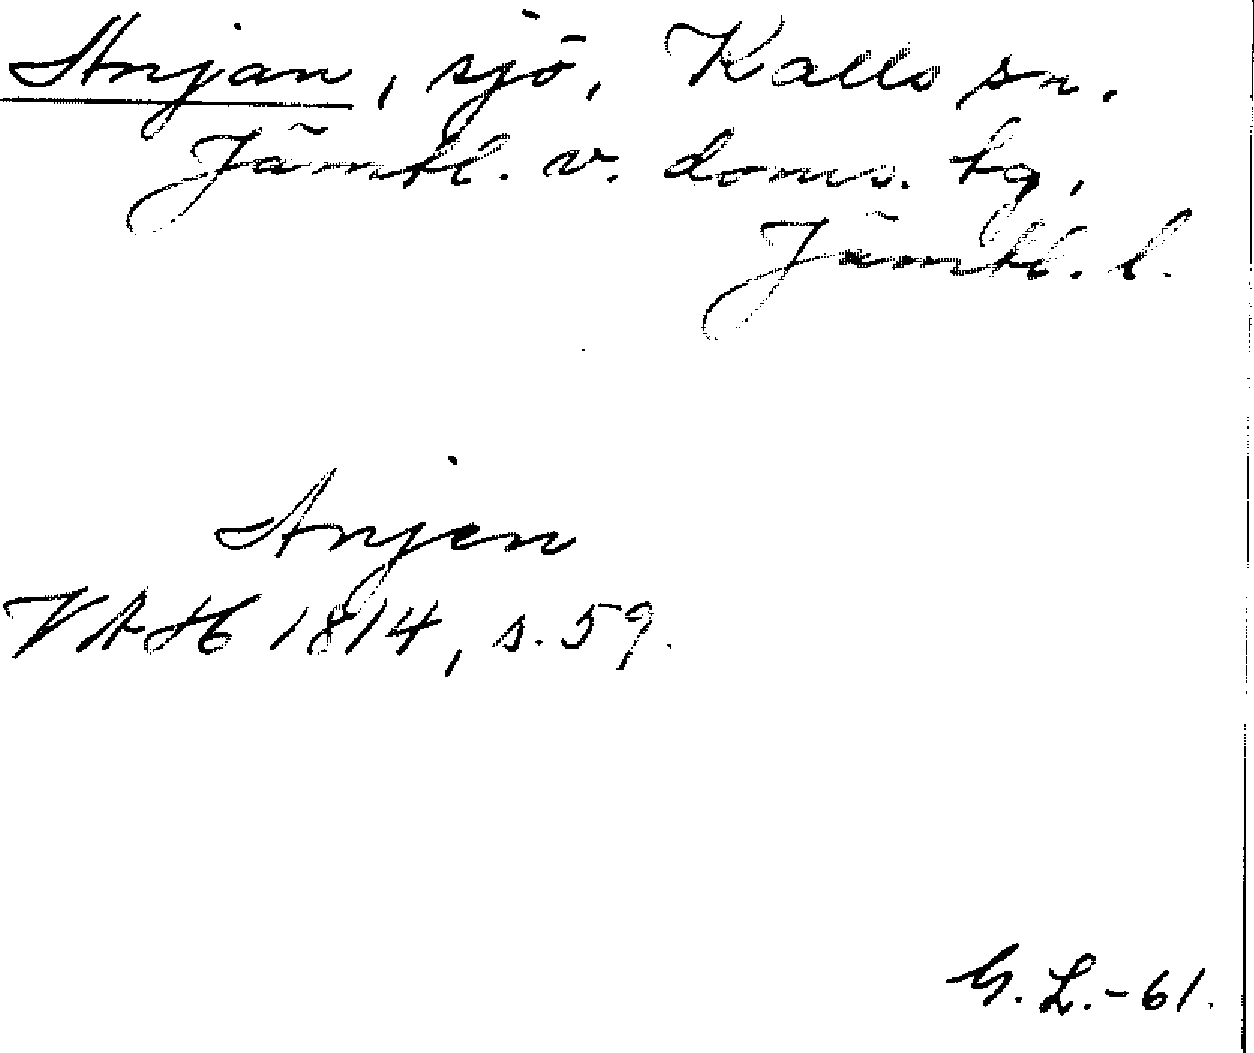 Anjan, sjö, Kalls sn.
Jämtl. v. doms. tg,
Jämtl. l.
Anjen
VAH 1814, s. 59.
G. L. -61.